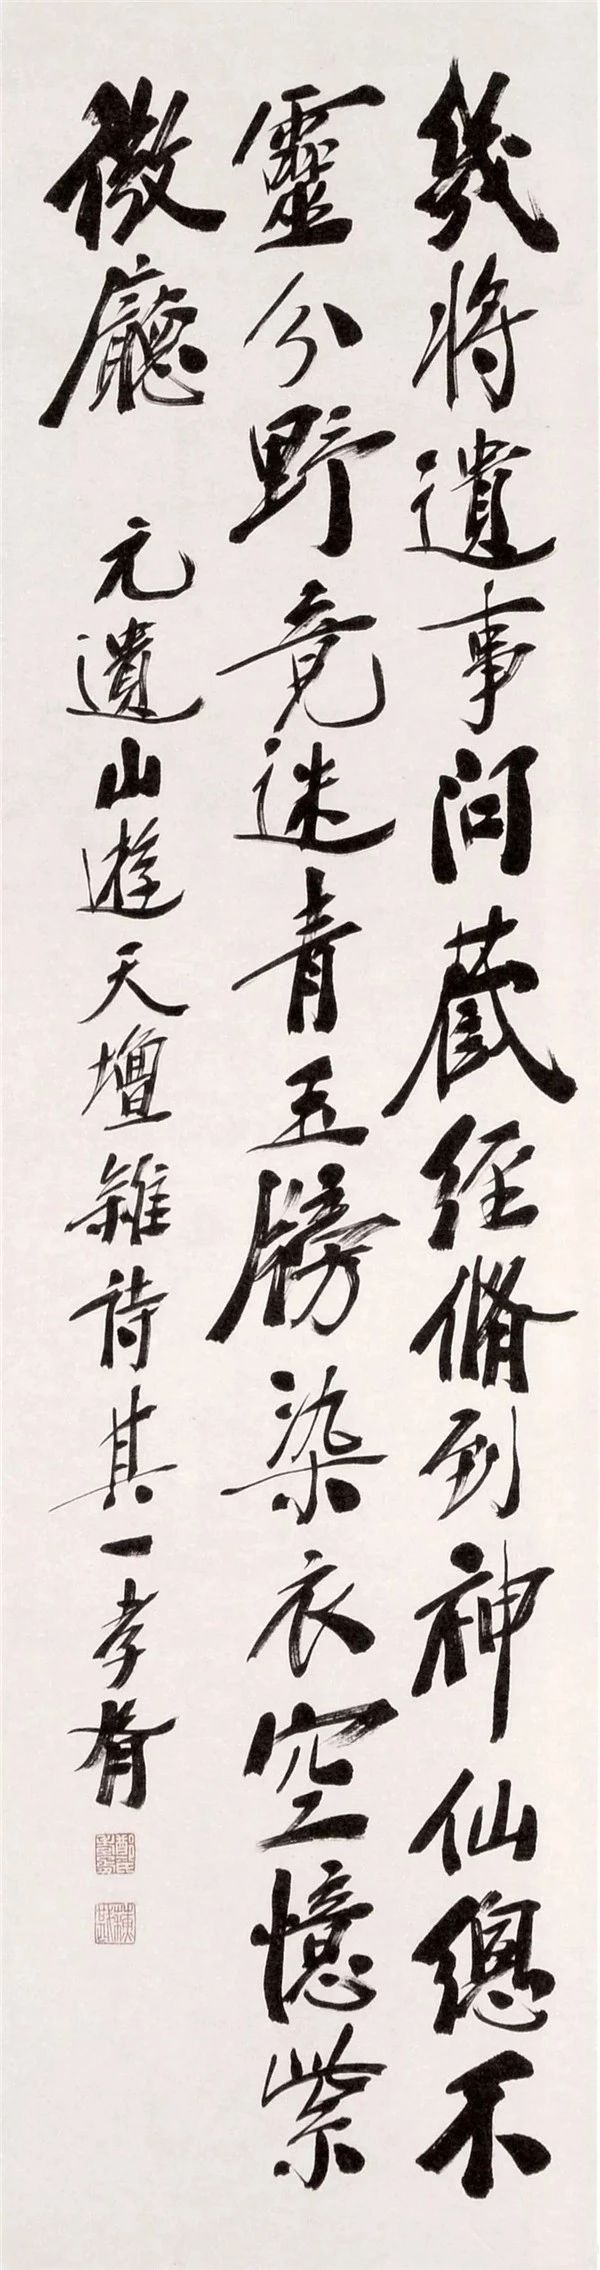 幾將遺事問藏經脩到神仙總不
靈分野竟迷青玉牓染衣空憶紫
微廳 元遺山遊天壇雜詩其一孝胥